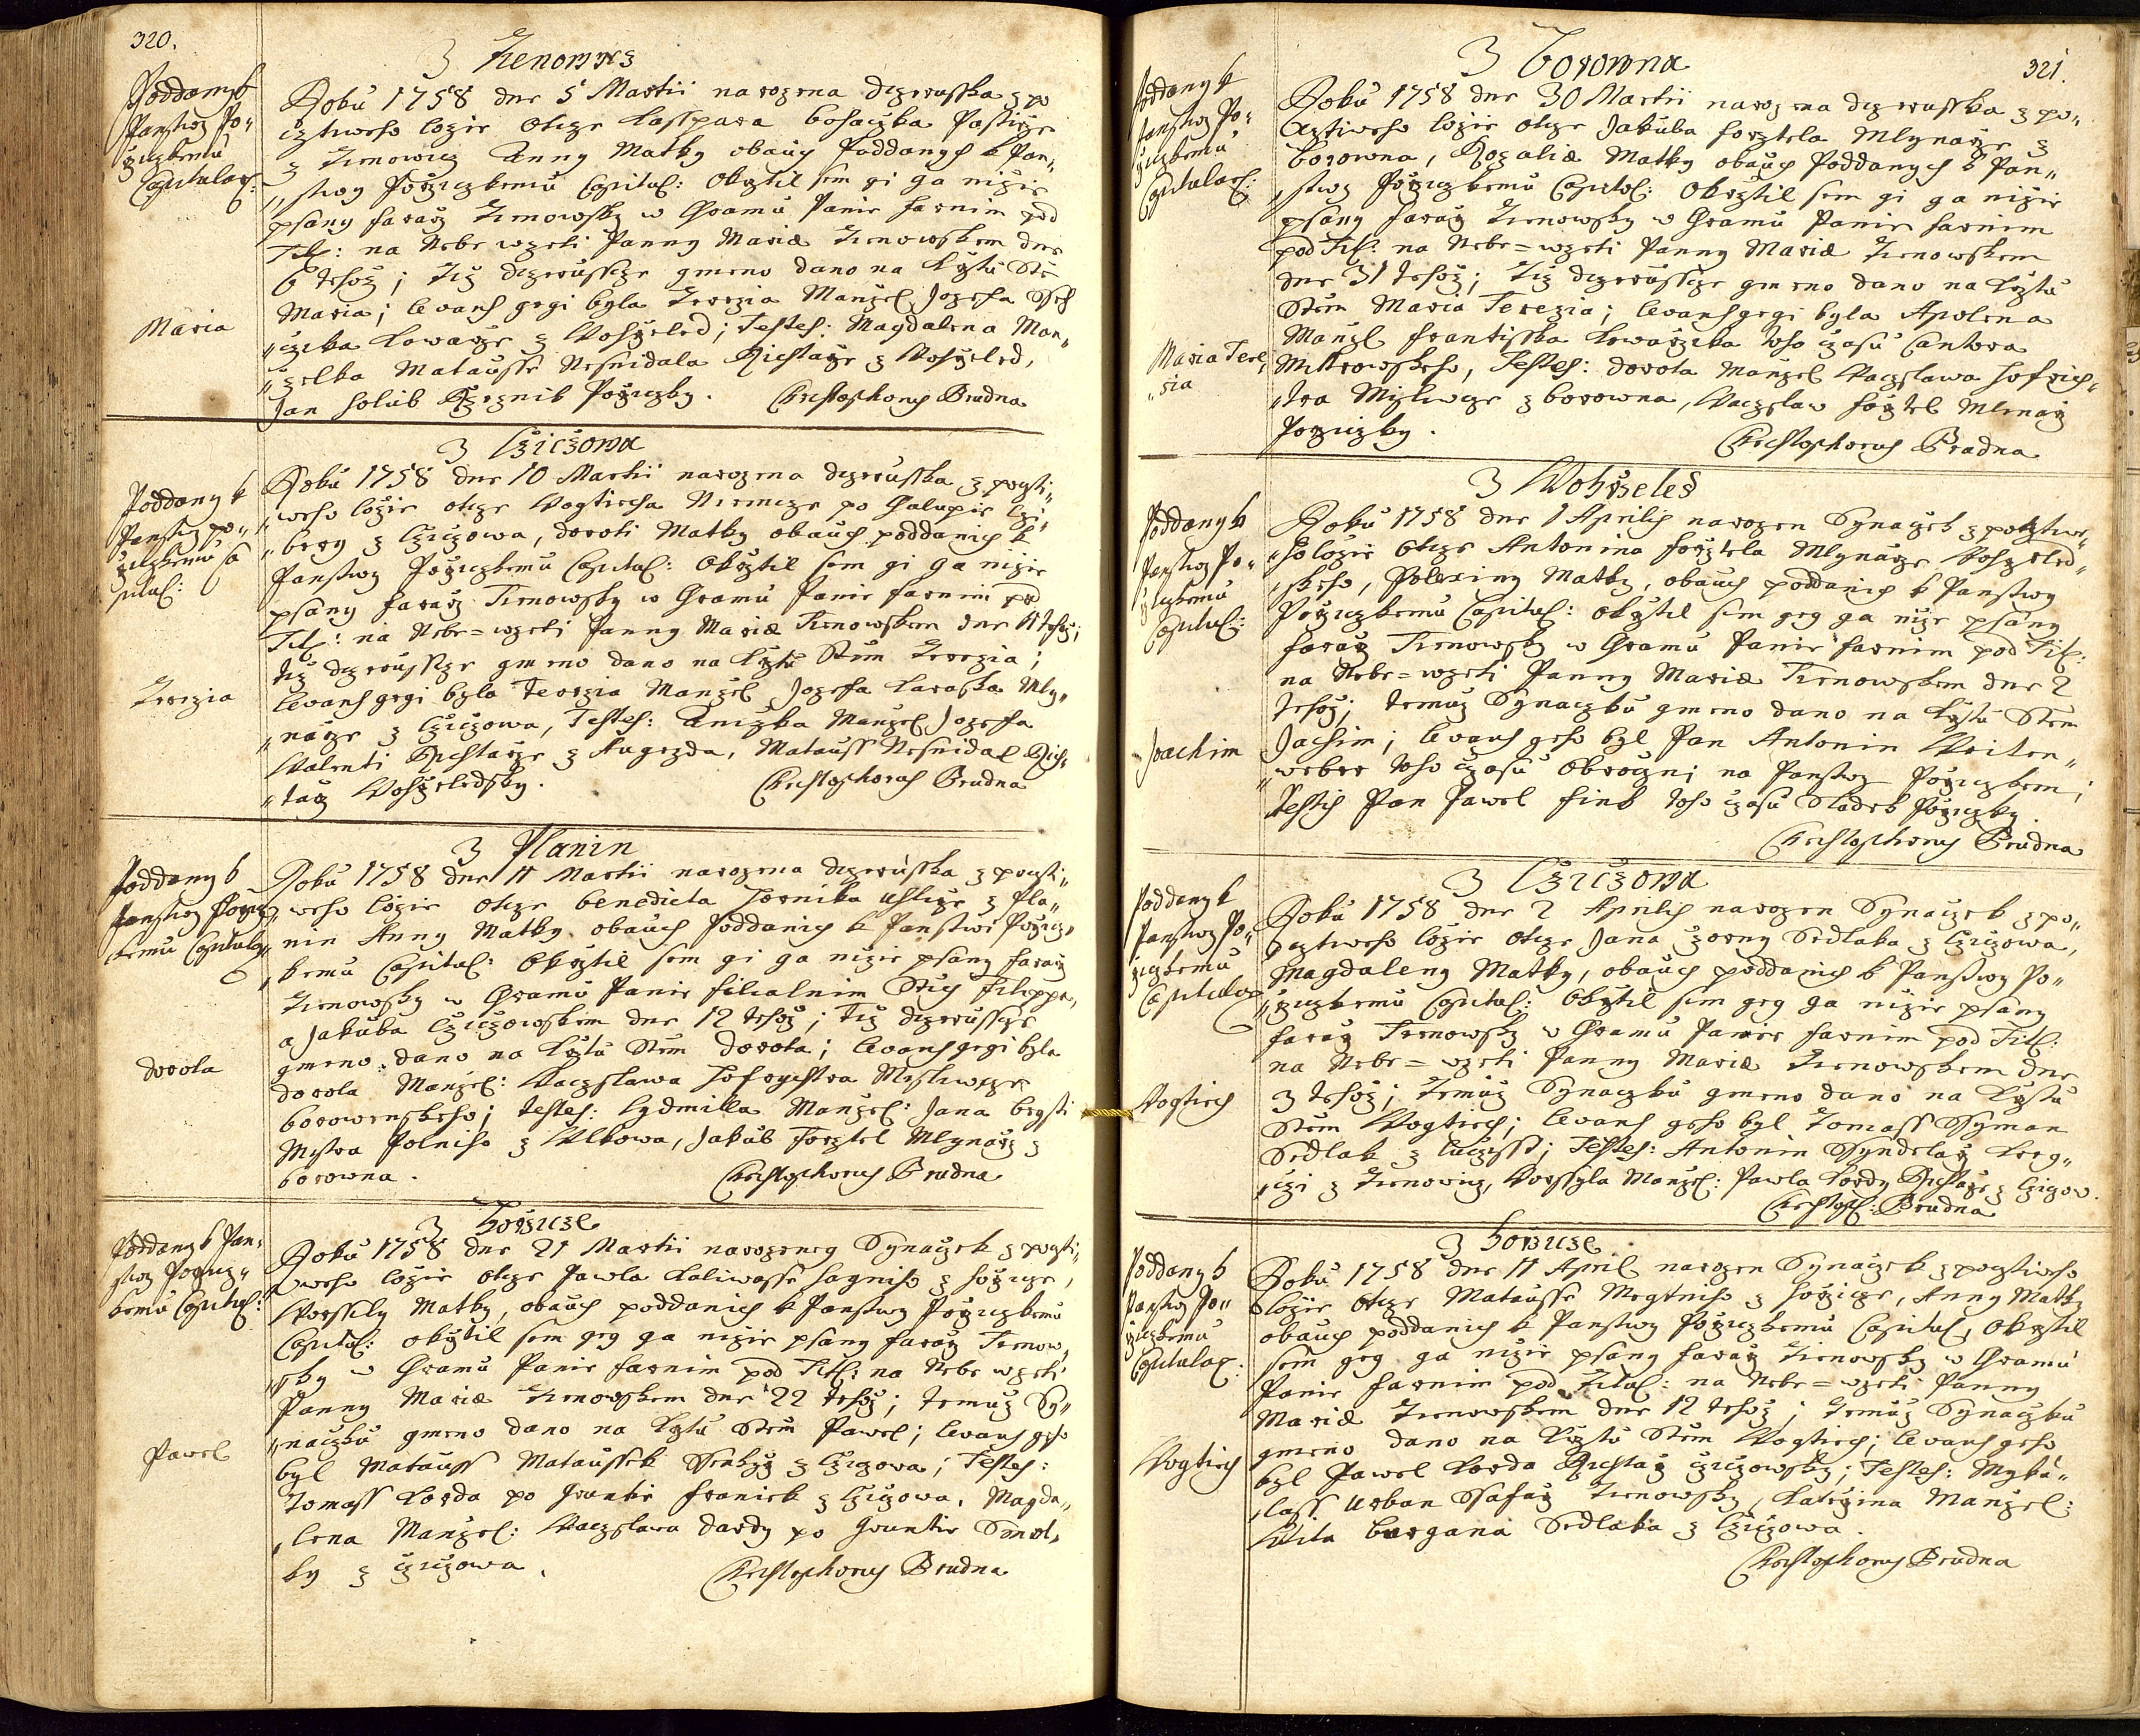 320.
Z Trnowicz
Poddany k
Panstwy Po„
ržiczkemu
Capitular:
Maria
Roku 1758 dne 5 Martii narozena dczerusska z po
cztiweholožie otcze Casspara Bohaczka Pastirze
z Trnowicz Anny Matky obauch Poddanych k Pan„
„stwy Poržiczkemu Capitul: Okrztil sem gi ga nižie
psany Fararz Trnowsky w Chramu Panie Farnim pod
Titl: na Nebe wzeti Panny Mariæ Trnowskem dne
6 tehož; Tež dczerussze gmeno dano na Krztu Stem
Maria; Levans gegi byla Terezia Manžel: Jozefa
„czka Kowarze z Wohrzeled; Testes: Magdalena Man„
„želka Mataussa Nesnidala Richtarze z Wohrzeled,
Jan Holub Rzeznik Poržiczky. Christophorus Brudna
Z Cžicžowa
Poddany k
Panstwy po„
ržiczkemu Ca
pitul:
Terezia
Roku 1758 dne 10 Martii narozena dczeruska z poczti„
„weho ložie otcze Wogtiecha Niemcze po Chalupie
z Cžicžowa, Doroti Matky obauch poddanich k
Panstwy Poržiczkemu Capitul: Okrztil sem gi ga nižie
psany Faraž Trnowsky w Chramu Panie Farnim pod
Titl: na Nebe=wzeti Panny Mariæ Trnowskem dne 11 tehož;
tež dczerussze gmeno dano na Krztu Stem Terezia;
Levans gegi byla Terezia Manžel Jozefa Karaska Mly„
„narze z Cžicžowa, Testes: Anižka Manžel Jozefa
Walenti Richtarze z Augezda, Matauss Nesnidal Rich„
„tarz Wohrzeledsky. Christophorus Brudna
Z Planin
Poddany k
Panstwy Poržicz„
kemu Capitular
Dorota
Roku 1758 dne 11 Martii narozena dczeruska z poczti„
weho ložie otcze Benedicta Hornika z Pla„
nin Anny Matky obauch Poddanich k Panstwi Poržicz„
„kemu Capitul: Okrztil sem gi ga nižie psany Faraž
Trnowsky w Chramu Panie Filialnim Stich Filippa,
a Jakuba Cžicžowskem dne 12 tehož; Tež dczerussze
gmeno dano na Krztu Stem Dorota; Levans gegi byla
Dorota Manžel: Waczslawa Hofrychtra Mysliwcze
Borowenskeho; Testes: Lydmilla Manžel: Jana
Mistra Polniho z Wlkowa, Jakub Forztel Mlynarz z
Borowna. Christophorus Brudna
Z Horžicze
Poddany k Pan„
stwy Poržicz„
kemu Capitul:
Pawel
Roku 1758 dne 21 Martii narozeneg Synaczek z poczti„
weho ložie otcze Pawla Kaliwasse Hagniho z Horžicze,
Worssily Matky, obauch poddanich k Panstwy Poržiczkemu
Capitul: okrztil sem geg ga nižie psany Faraž Trnow„
„sky w Chramu Panie Farnim pod Titl: na Nebe wzeti
Panny Mariæ Trnowskem dne 22 tehož; temuž Sy„
„naczku gmeno dano na Krztu Stem Pawel; Levans geho
byl Matauss Mataussek z Cžicžowa; Testes:
Tomass Korda po Gruntie Franiek z Cžicžowa, Magda„
„lena Manžel: Waczslawa Dardy po Gruntie Smol„
ky z Cžicžowa. Christophorus Brudna
321.
Z Borowna
Poddany k
Panstwy Po„
ržiczkemu
Capitular:
Maria Tere„
„zia
Roku 1758 dne 30 Martii narozena dczeruska z po„
cztiweho ložie otcze Jakuba Forztela Mlynarze z
Borowna, Rozaliæ Matky obauch Poddanych k Pan„
„stwy Poržiczkemu Capitul: Okrztil sem gi ga nižie
psany Faraž Trnowsky w Chramu Panie Farnim
pod Titl: na Nebe=wzeti Panny Mariæ Trnowskem
dne 31 tehož; Tež dczerussze gmeno dano na Krztu
Stem Maria Terezia; Levans gegi byla Apolena
Manžel Frantisska Kowarzika toho czasu Cantora
Mitrowskeho, Testes: Dorota Manžel Waczslawa Hofrich„
„tra Mysliwcze z Borowna, Waczslaw Forztel Mlinarz
Poržiczky. Christophorus Brudna
Z Wohrželed
Poddany k
Panstwy Po„
ržiczkemu
Capitul:
Joachim
Roku 1758 dne 1 Aprilis narozen Synaczek z pocztiwe„
„ho ložie otcze Antonina Forztela Mlynarze Wohrzeled„
„skeho, Polexiny Matky, obauch poddanich k Panstwy
Poržiczkemu Capitul: okrztil sem geg ga niže psany
Faraž Trnowsky w Chramu Panie Farnim pod Titl:
na Nebe=wzeti Panny Mariæ Trnowskem dne 2
tehož; temuž Synaczku gmeno dano na Krztu Stem
Jachim; Levans geho byl Pan Antonin Weiten„
„weber toho czasu Obrocžni na Panstwy Poržiczkem;
Testis Pan Pawel Fink toho czasu Sladek Poržiczky.
Christophorus Brudna
Z Cžicžowa
Poddany k
Panstwy Po„
ržiczkemu
Capitular
Wogtiech
Roku 1758 dne 2 Aprilis narozen Synaczek z po„
cztiweho ložie otcze Jana Sedlaka z Cžicžowa,
Magdaleny Matky, obauch poddanich k Panstwy Po„
„ržiczkemu Capitul: Okrztil sem geg ga nižie psany
Faraž Trnowsky w Chramu Panie Farnim pod Titl:
na Nebe=wzeti Panny Mariæ Trnowskem dne
3 tehož; Temuž Synaczku gmeno dano na Krztu
Stem Wogtiech; Levans geho byl Tomass Ssyman
Sedlak z; Testes: Antonin Ssyndelarž Kreg„
„czi z Trnowicz, Worssyla Manžel: Pawla Kordy Richtarze z Cžicžow.
Christoph: Brudna
Z Horžicze
Poddany k
Panstwy Po„
ržiczkemu
Capitular:
Wogtiech
Roku 1758 dne 11 April narozen Synaczek z pocztiweho
ložie otcze Matausse Megtniho z Horžicze, Anny Matky
obauch poddanich k Panstwy Poržiczkemu Capitul, Okrztil
sem geg ga nižie psany Faraž Trnowsky w Chramu
Panie Farnim pod Titul: na Nebe=wzeti Panny
Mariæ Trnowskem dne 12 tehož; temuž Synaczku
gmeno dano na Krztu Stem Wogtiech; Levans geho
byl Pawel Korda Richtarž Cžicžowsky; Testes: Myku„
„lass Urban Ssafarž Trnowsky, Katerzina Manžel:
Wita Bergana Sedlaka z Cžicžowa.
Christophorus Brudna